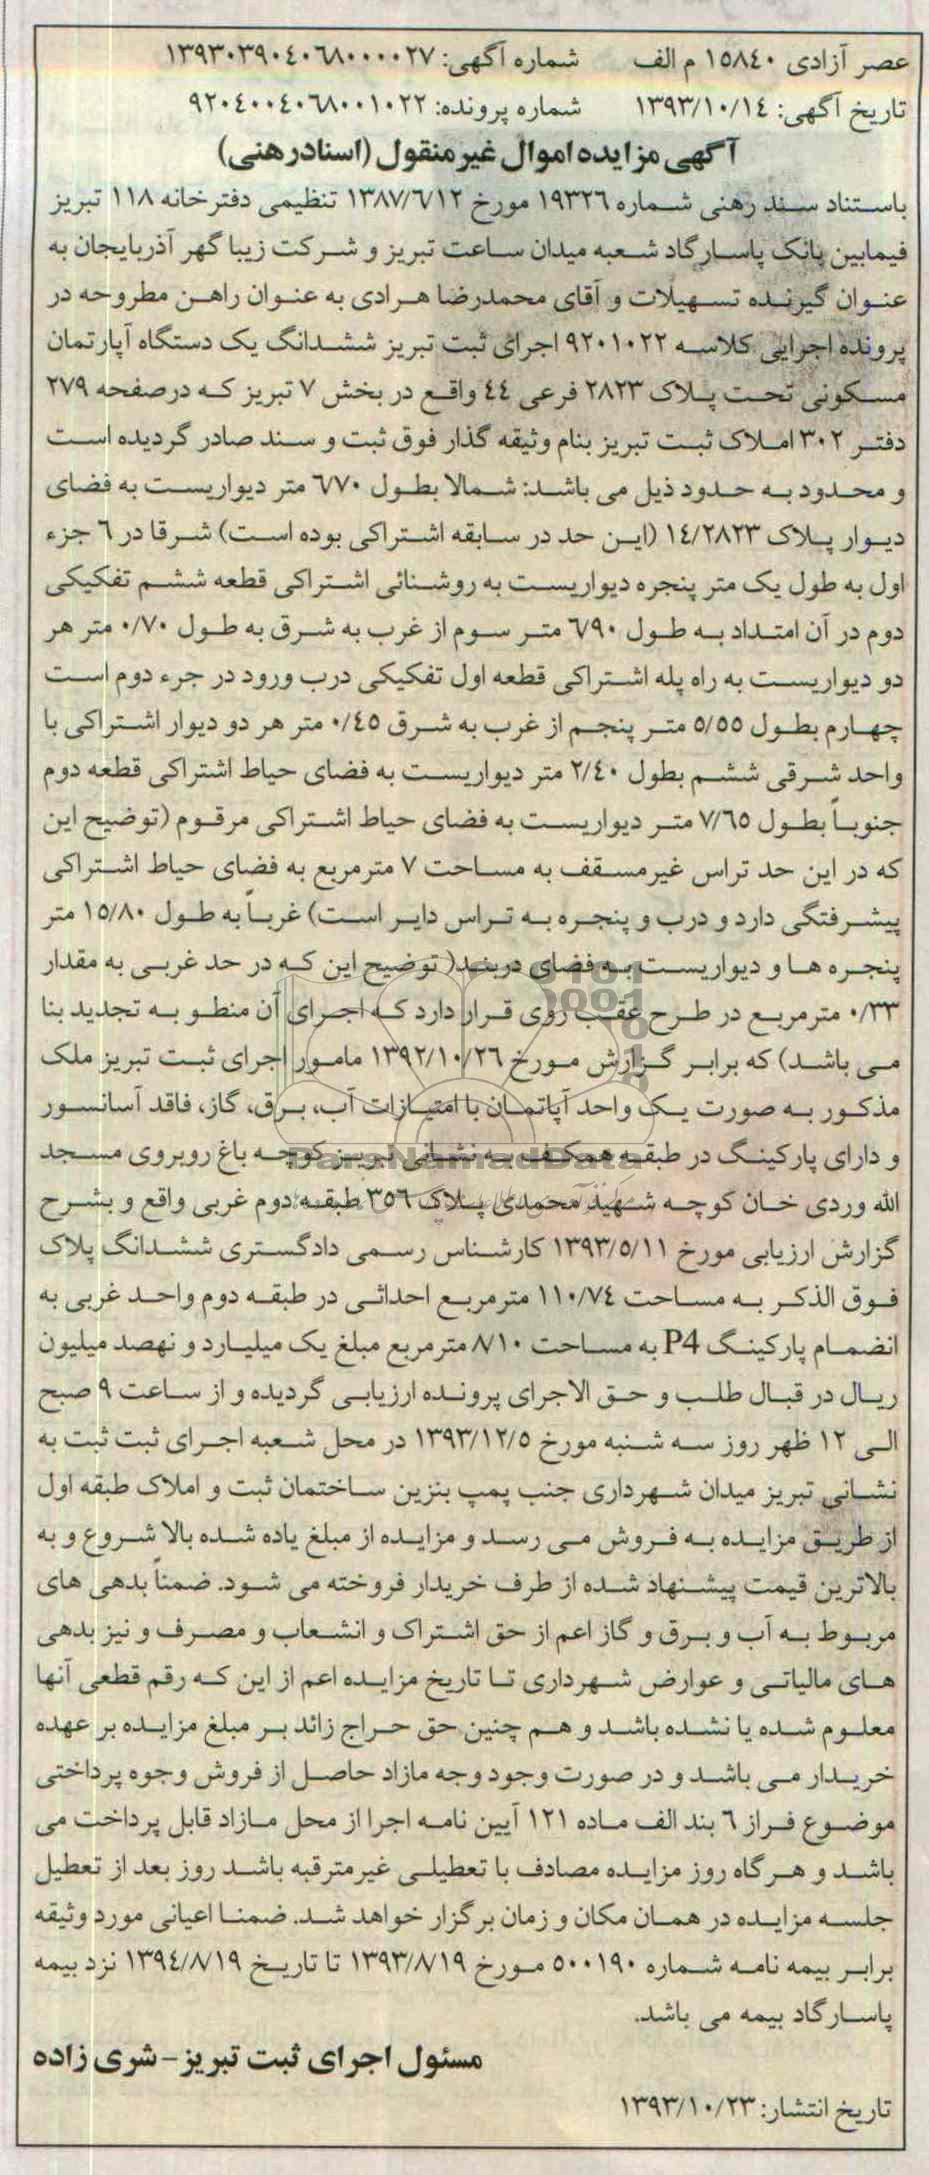 عصر آزادی ١٥٨٤٠ م الف شماره آگهی: ١٣٩٣٠٣٩٠٤٠٦٨٠٠٠٠٢٧
تاریخ آگهی: ١٣٩٣/١٠/١٤ شماره پرونده: ٩٢٠٤٠٠٤٠٦٨٠٠١٠٢٢
آگهی مزایده اموال غیر منقول (اسناد رهنی)
باستناد سند رهنی شماره ١٩٣٢٦ مورخ ١٣٨٧/٦/١٢ تنظیمی دفترخانه ١١٨ تبریز
فیمابین بانک پاسارگاد شعبه میدان ساعت تبریز و شرکت زیبا گهر آذربایجان به
عنوان گیرنده تسهیلات و آقای محمدرضا هرادی به عنوان راهن مطروحه در
پرونده اجرایی کلاسه ٩٢٠١٠٢٢ اجرای ثبت تبریز ششدانگ یک دستگاه آپارتمان
مسکونی تحت پلاک ٢٨٢٣ فرعی ٤٤ واقع در بخش ٧ تبریز که درصفحه ٢٧٩
دفتر ٣٠٢ املاک ثبت تبریز بنام وثیقه گذار فوق ثبت و سند صادر گردیده است
و محدود به حدود ذیل می باشد: شمالا بطول ٦/٧٠ متر دیواریست به فضای
دیوار پلاک ١٤/٢٨٢٣ (این حد در سابقه اشتراکی بوده است) شرقا در ٦ جزء
اول به طول یک متر پنجره دیواریست به روشنائی اشتراکی قطعه ششم تفکیکی
دوم در آن امتداد به طول ٦/٩٠ متر سوم از غرب به شرق به طول ٠/٧٠ متر هر
دو دیواریست به راه پله اشتراکی قطعه اول تفکیکی درب ورود در جرء دوم است
چهارم بطول ٥/٥٥ متر پنجم از غرب به شرق ٠/٤٥ متر هر دو دیوار اشتراکی با
واحد شرقی ششم بطول ٢/٤٠ متر دیواریست به فضای حیاط اشتراکی قطعه دوم
جنوباً بطول ٧/٦٥ متر دیواریست به فضای حیاط اشتراکی مرقوم (توضیح این
که در این حد تراس غیرمسقف به مساحت ٧ مترمربع به فضای حیاط اشتراکی
پیشرفتگی دارد و درب و پنجره به تراس دایر است) غرباً به طول ١٥/٨٠ متر
پنجره ها و دیواریست به فضای دربند( توضیح این که در حد غربی به مقدار
٠/٣٣ مترمربع در طرح عقب روی قرار دارد که اجرای آن منطو به تجدید بنا
می باشد) که برابر گزارش مورخ ١٣٩٢/١٠/٢٦ مامور اجرای ثبت تبریز ملک
مذکور به صورت یک واحد آپاتمان با امتیازات آب، برق، گاز، فاقد آسانسور
و دارای پارکینگ در طبقه همکف به نشانی تبریز کوچه باغ روبروی مسجد
الله وردی خان کوچه شهید محمدی پلاک ٣٥٦ طبقه دوم غربی واقع و بشرح
گزارش ارزیابی مورخ ١٣٩٣/٥/١١ کارشناس رسمی دادگستری ششدانگ پلاک
فوق الذکر به مساحت ١١٠/٧٤ مترمربع احداثی در طبقه دوم واحد غربی به
انضمام پارکینگ P4 به مساحت ٨/١٠ مترمربع مبلغ یک میلیارد و نهصد میلیون
ریال در قبال طلب و حق الاجرای پرونده ارزیابی گردیده و از ساعت ٩ صبح
الی ١٢ ظهر روز سه شنبه مورخ ١٣٩٣/١٢/٥ در محل شعبه اجرای ثبت ثبت به
نشانی تبریز میدان شهرداری جنب پمپ بنزین ساختمان ثبت و املاک طبقه اول
از طریق مزایده به فروش می رسد و مزایده از مبلغ یاده شده بالا شروع و به
بالاترین قیمت پیشنهاد شده از طرف خریدار فروخته می شود. ضمناً بدهی های
مربوط به آب و برق و گاز اعم از حق اشتراک و انشعاب و مصرف و نیز بدهی
های مالیاتی و عوارض شهرداری تا تاریخ مزایده اعم از این که رقم قطعی آنها
معلوم شده یا نشده باشد و هم چنین حق حراج زائد بر مبلغ مزایده بر عهده
خریدار می باشد و در صورت وجود وجه مازاد حاصل از فروش وجوه پرداختی
موضوع فراز ٦ بند الف ماده ١٢١ آیین نامه اجرا از محل مازاد قابل پرداخت می
باشد و هرگاه روز مزایده مصادف با تعطیلی غیرمترقبه باشد روز بعد از تعطیل
جلسه مزایده در همان مکان و زمان برگزار خواهد شد. ضمنا اعیانی مورد وثیقه
برابر بیمه نامه شماره ٥٠٠١٩٠ مورخ ١٣٩٣/٨/١٩ تا تاریخ ١٣٩٤/٨/١٩ نزد بیمه
پاسارگاد بیمه می باشد.
مسئول اجرای ثبت تبریز - شری زاده
تاریخ انتشار: ١٣٩٣/١٠/٢٣
ParsNamadData